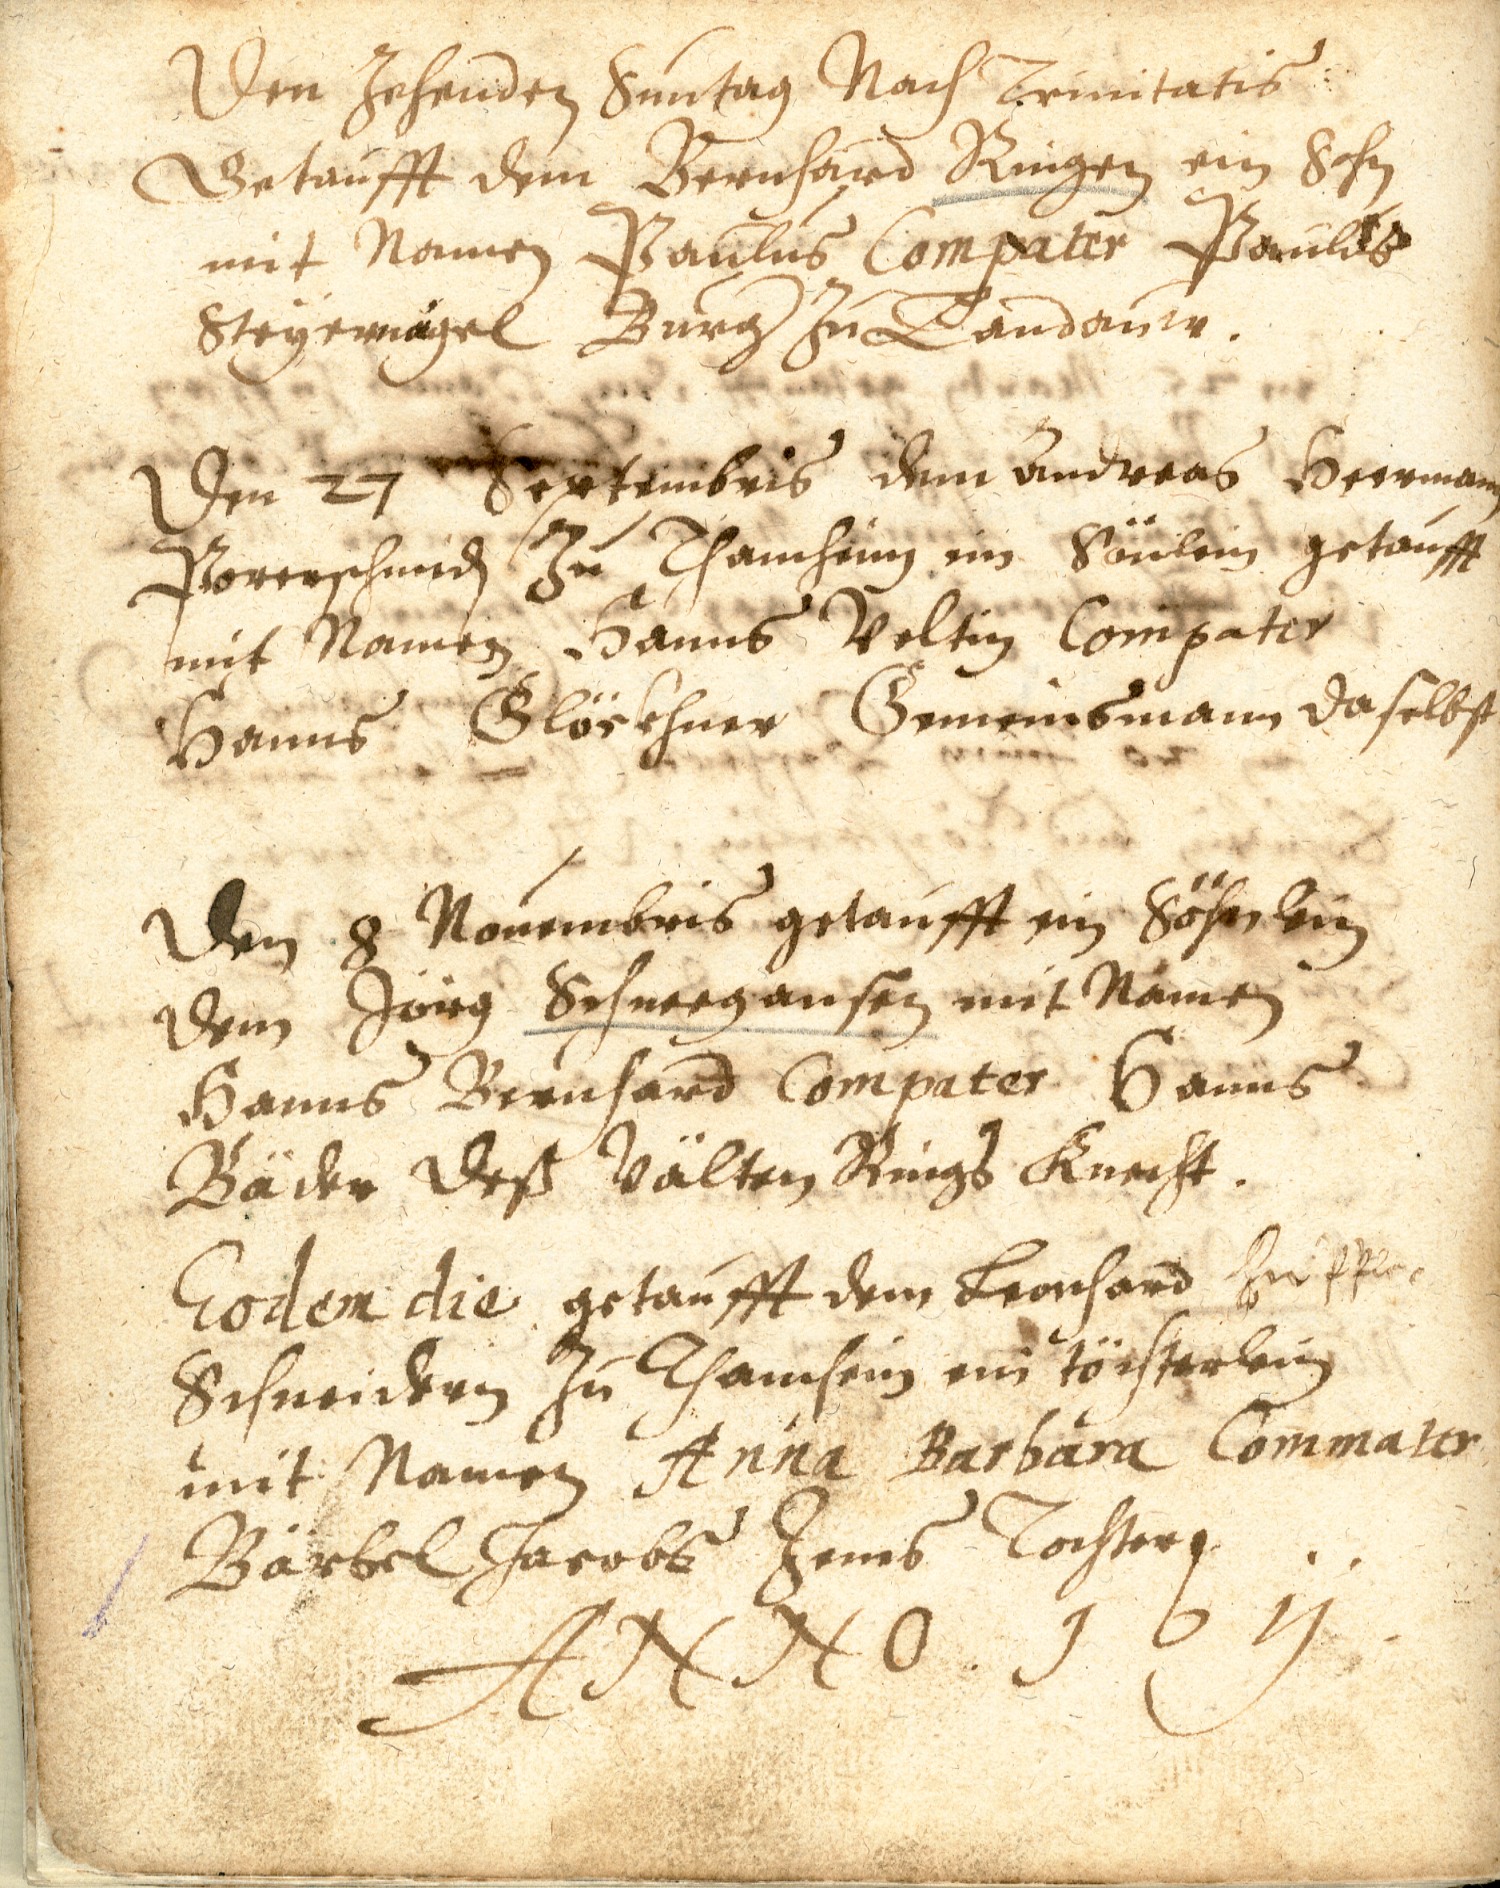 Den Zehenden Suntag Nach Trinitatis
Getaufft dem Bernhard Ringen ein Sohn
mit Namen Paulus Compater Paulus
Steyernagel Burg Zu Landauw.
Den 27 Septembris dem Andreas Heerman
zu Thamheim ein Sönlein getaufft
mit Namen Hanns Veltin Compater
Hanns Glöckhner Gemeinsmann daselbst
Den 8 Nouembris getaufft ein Söhnlein
dem Jörg Schneegansen mit Namen
Hanns Bernhard Compater Hanns
Bäder deß Välten Rings Knecht.
Eodem die getaufft dem Leonhard
Schneidern zu Thamheim ein töchterlein
mit Namen Anna Barbara Commater
Bärbel Jacobs Zeins Tochter.
ANNO. 1611.